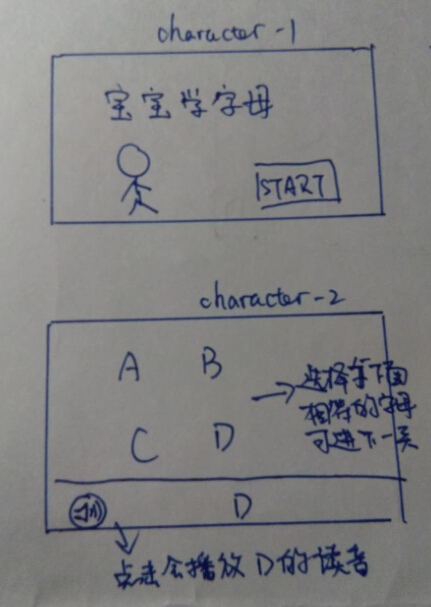 character-1
宝宝学字母
START
character-2
A B
C D
选择与下面
相符的字母
可进下一关
D
点击会播放D的读音